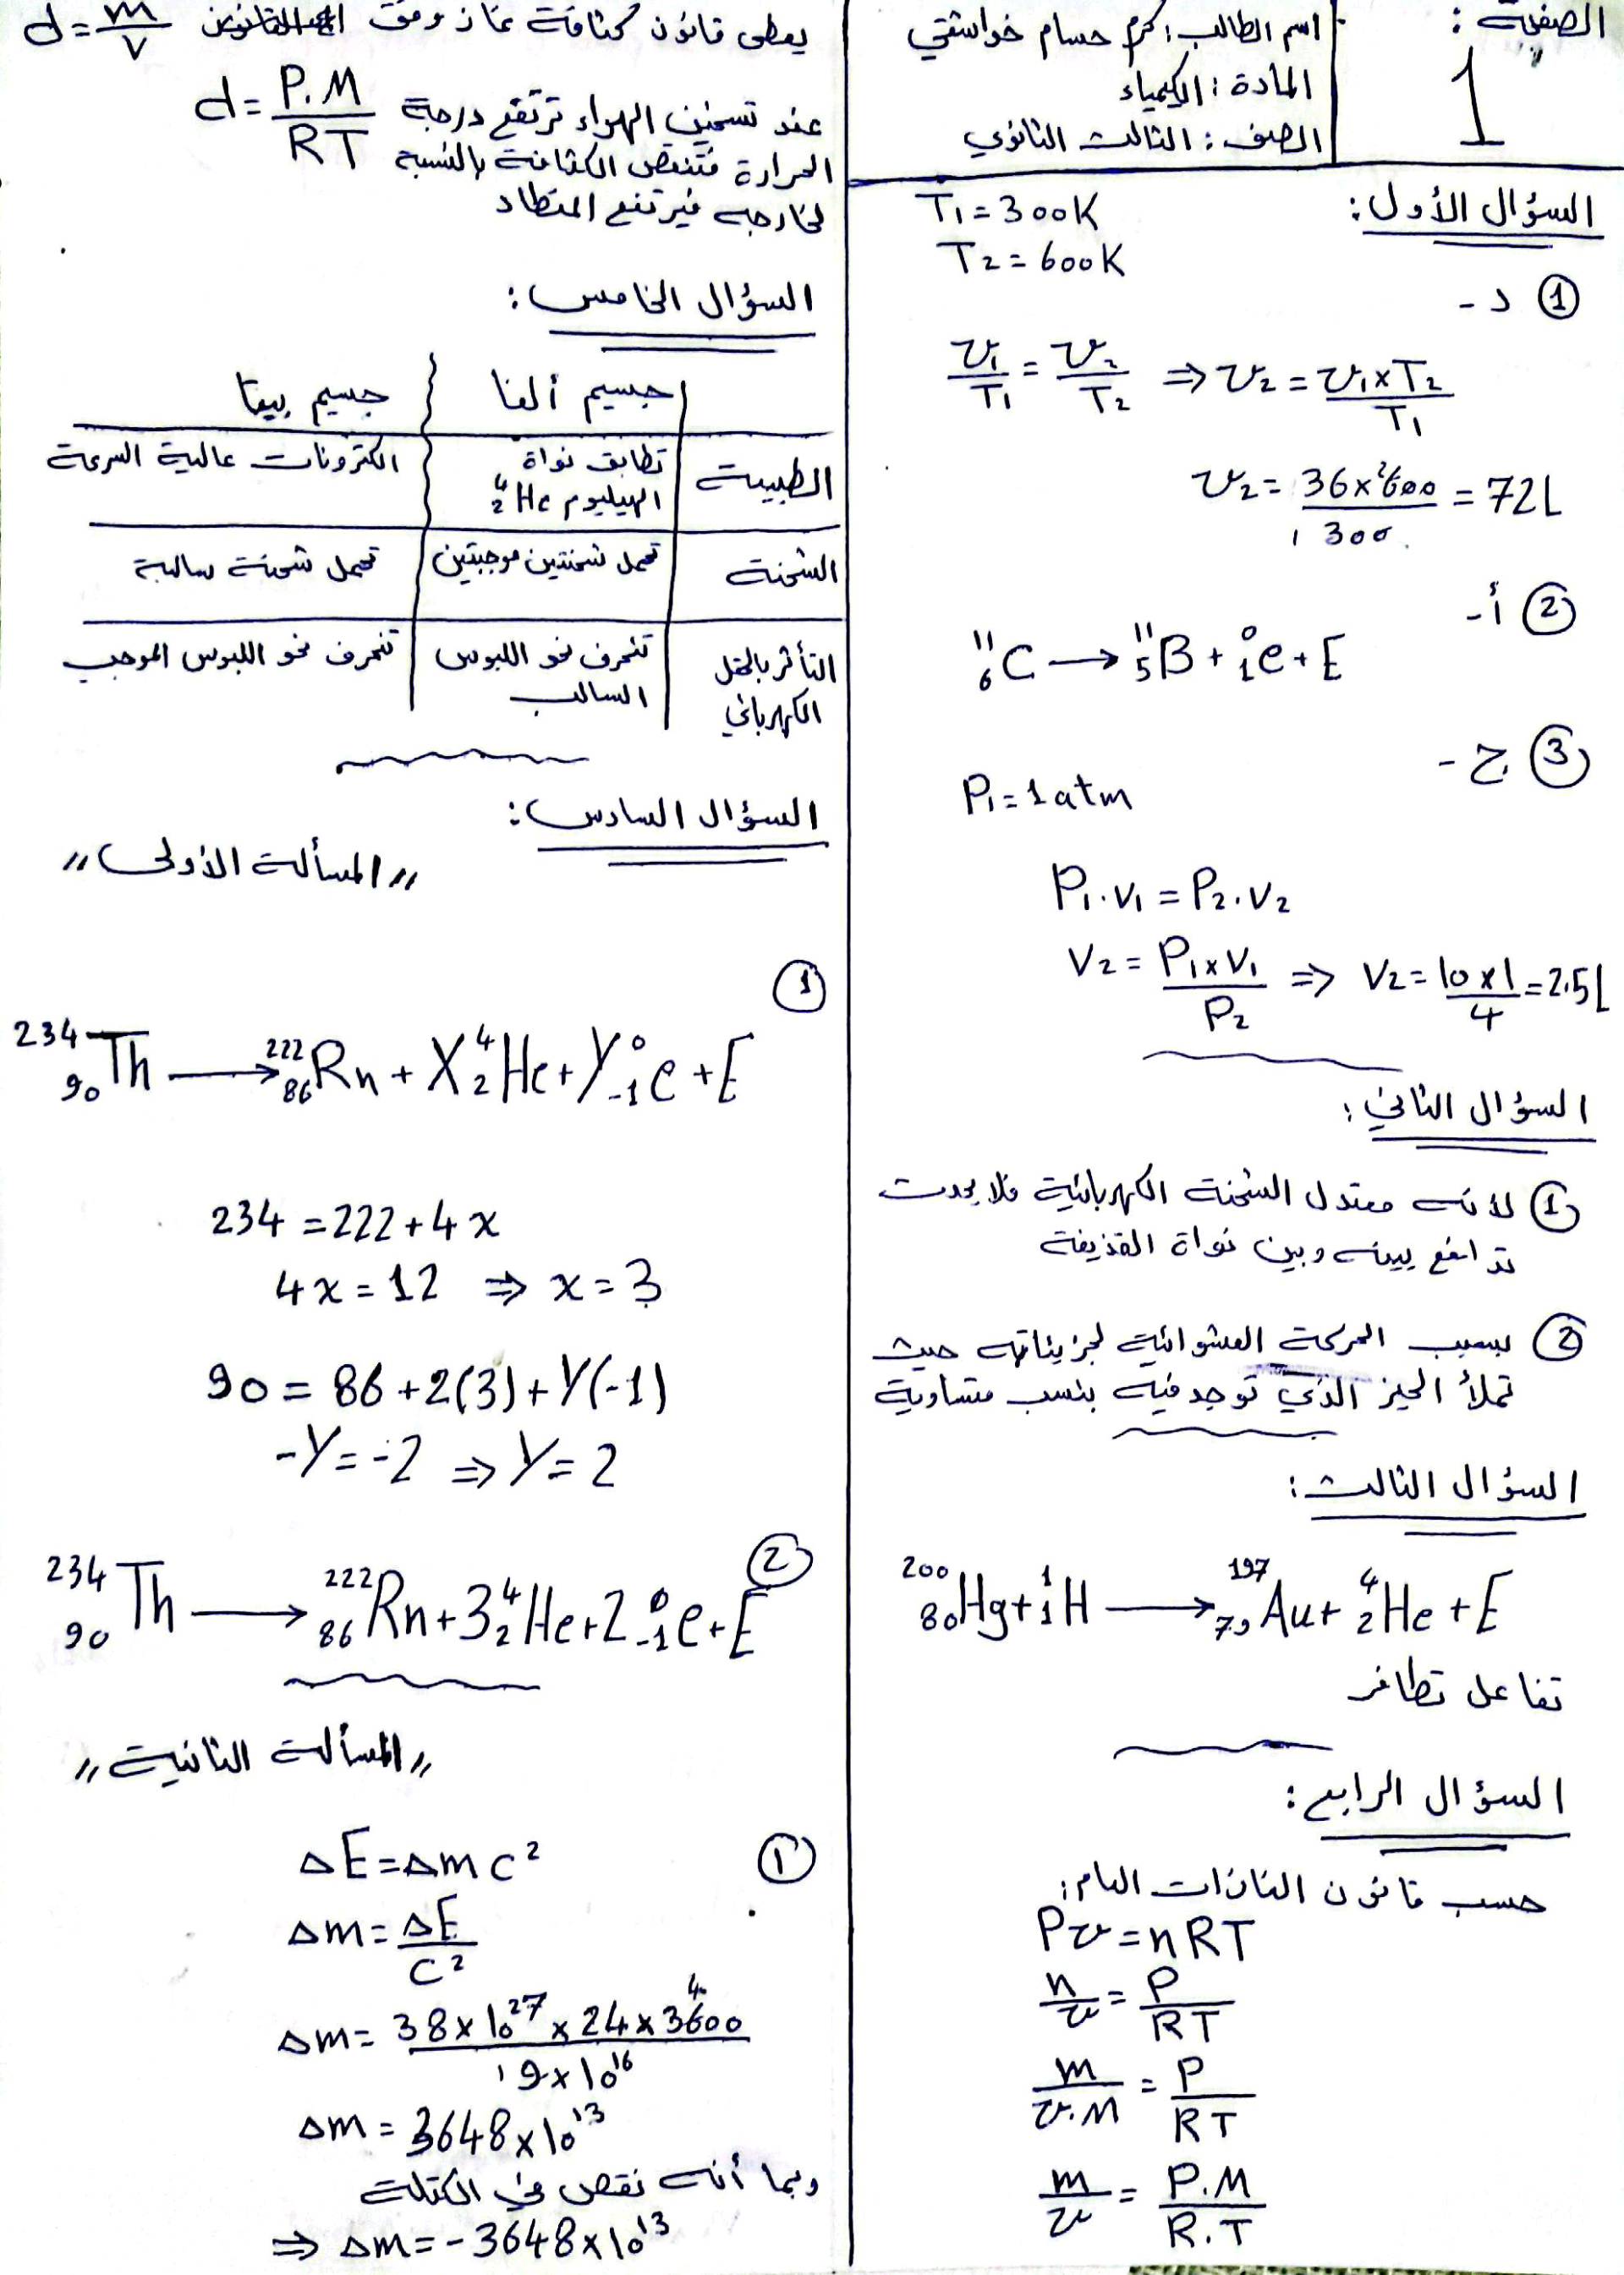 الصفحة:
1
اسم الطالب: كرم حسام خواشقي
المادة: الكيمياء
الصف: الثالث الثانوي
السؤال الأول:
T₁ = 300K
T₂ = 600K
① د -
v₁/T₁ = v₂/T₂ ⇒ v₂ = v₁×T₂/T₁
v₂ = 36×600/300 = 72L
② أ -
¹¹₆C → ¹¹₅B + ⁰₁e + E
③ ج -
P₁ = 1atm
P₁.v₁ = P₂.v₂
V₂ = P₁×V₁/P₂ ⇒ V₂ = 10×1/4 = 2.5L
السؤال الثاني:
① لأنه معتدل الشحنة الكهربائية فلا يحدث
تدافع بينه وبين نواة القذيفة
② بسبب الحركة العشوائية لجزيئاته حيث
تملأ الحيز الذي توجد فيه بنسب متساوية
السؤال الثالث:
²⁰⁰₈₀Hg + ¹₁H → ¹⁹⁷₇₉Au + ⁴₂He + E
تفاعل تطافر
السؤال الرابع:
حسب قانون الغازات العام:
Pv = nRT
n/v = P/RT
m/v.M = P/RT
m/v = P.M/R.T
يعطى قانون كثافة غاز وفق القانون d = m/v
d = P.M/RT
عند تسخين الهواء ترتفع درجة
الحرارة فتنقص الكثافة بالنسبة
لخارجه فيرتفع المنطاد
السؤال الخامس:
جسيم ألفا جسيم بيتا
الطبيعة تطابق نواة الهيليوم ⁴₂He الكترونات عالية السرعة
الشحنة تحمل شحنتين موجبتين تحمل شحنة سالبة
التأثر بالحقل الكهربائي تنحرف نحو اللبوس السالب تنحرف نحو اللبوس الموجب
السؤال السادس:
"المسألة الأولى"
①
²³⁴₉₀Th → ²²²₈₆Rn + X⁴₂He + Y⁰₋₁e + E
234 = 222 + 4x
4x = 12 ⇒ x = 3
90 = 86 + 2(3) + Y(-1)
-Y = -2 ⇒ Y = 2
②
²³⁴₉₀Th → ²²²₈₆Rn + 3⁴₂He + 2⁰₋₁e + E
"المسألة الثانية"
① ΔE = Δmc²
Δm = ΔE/C²
Δm = 38×10²⁷×24×3600/9×10¹⁶
Δm = 3648×10¹³
وبما أنه نقص في الكتلة
⇒ Δm = -3648×10¹³